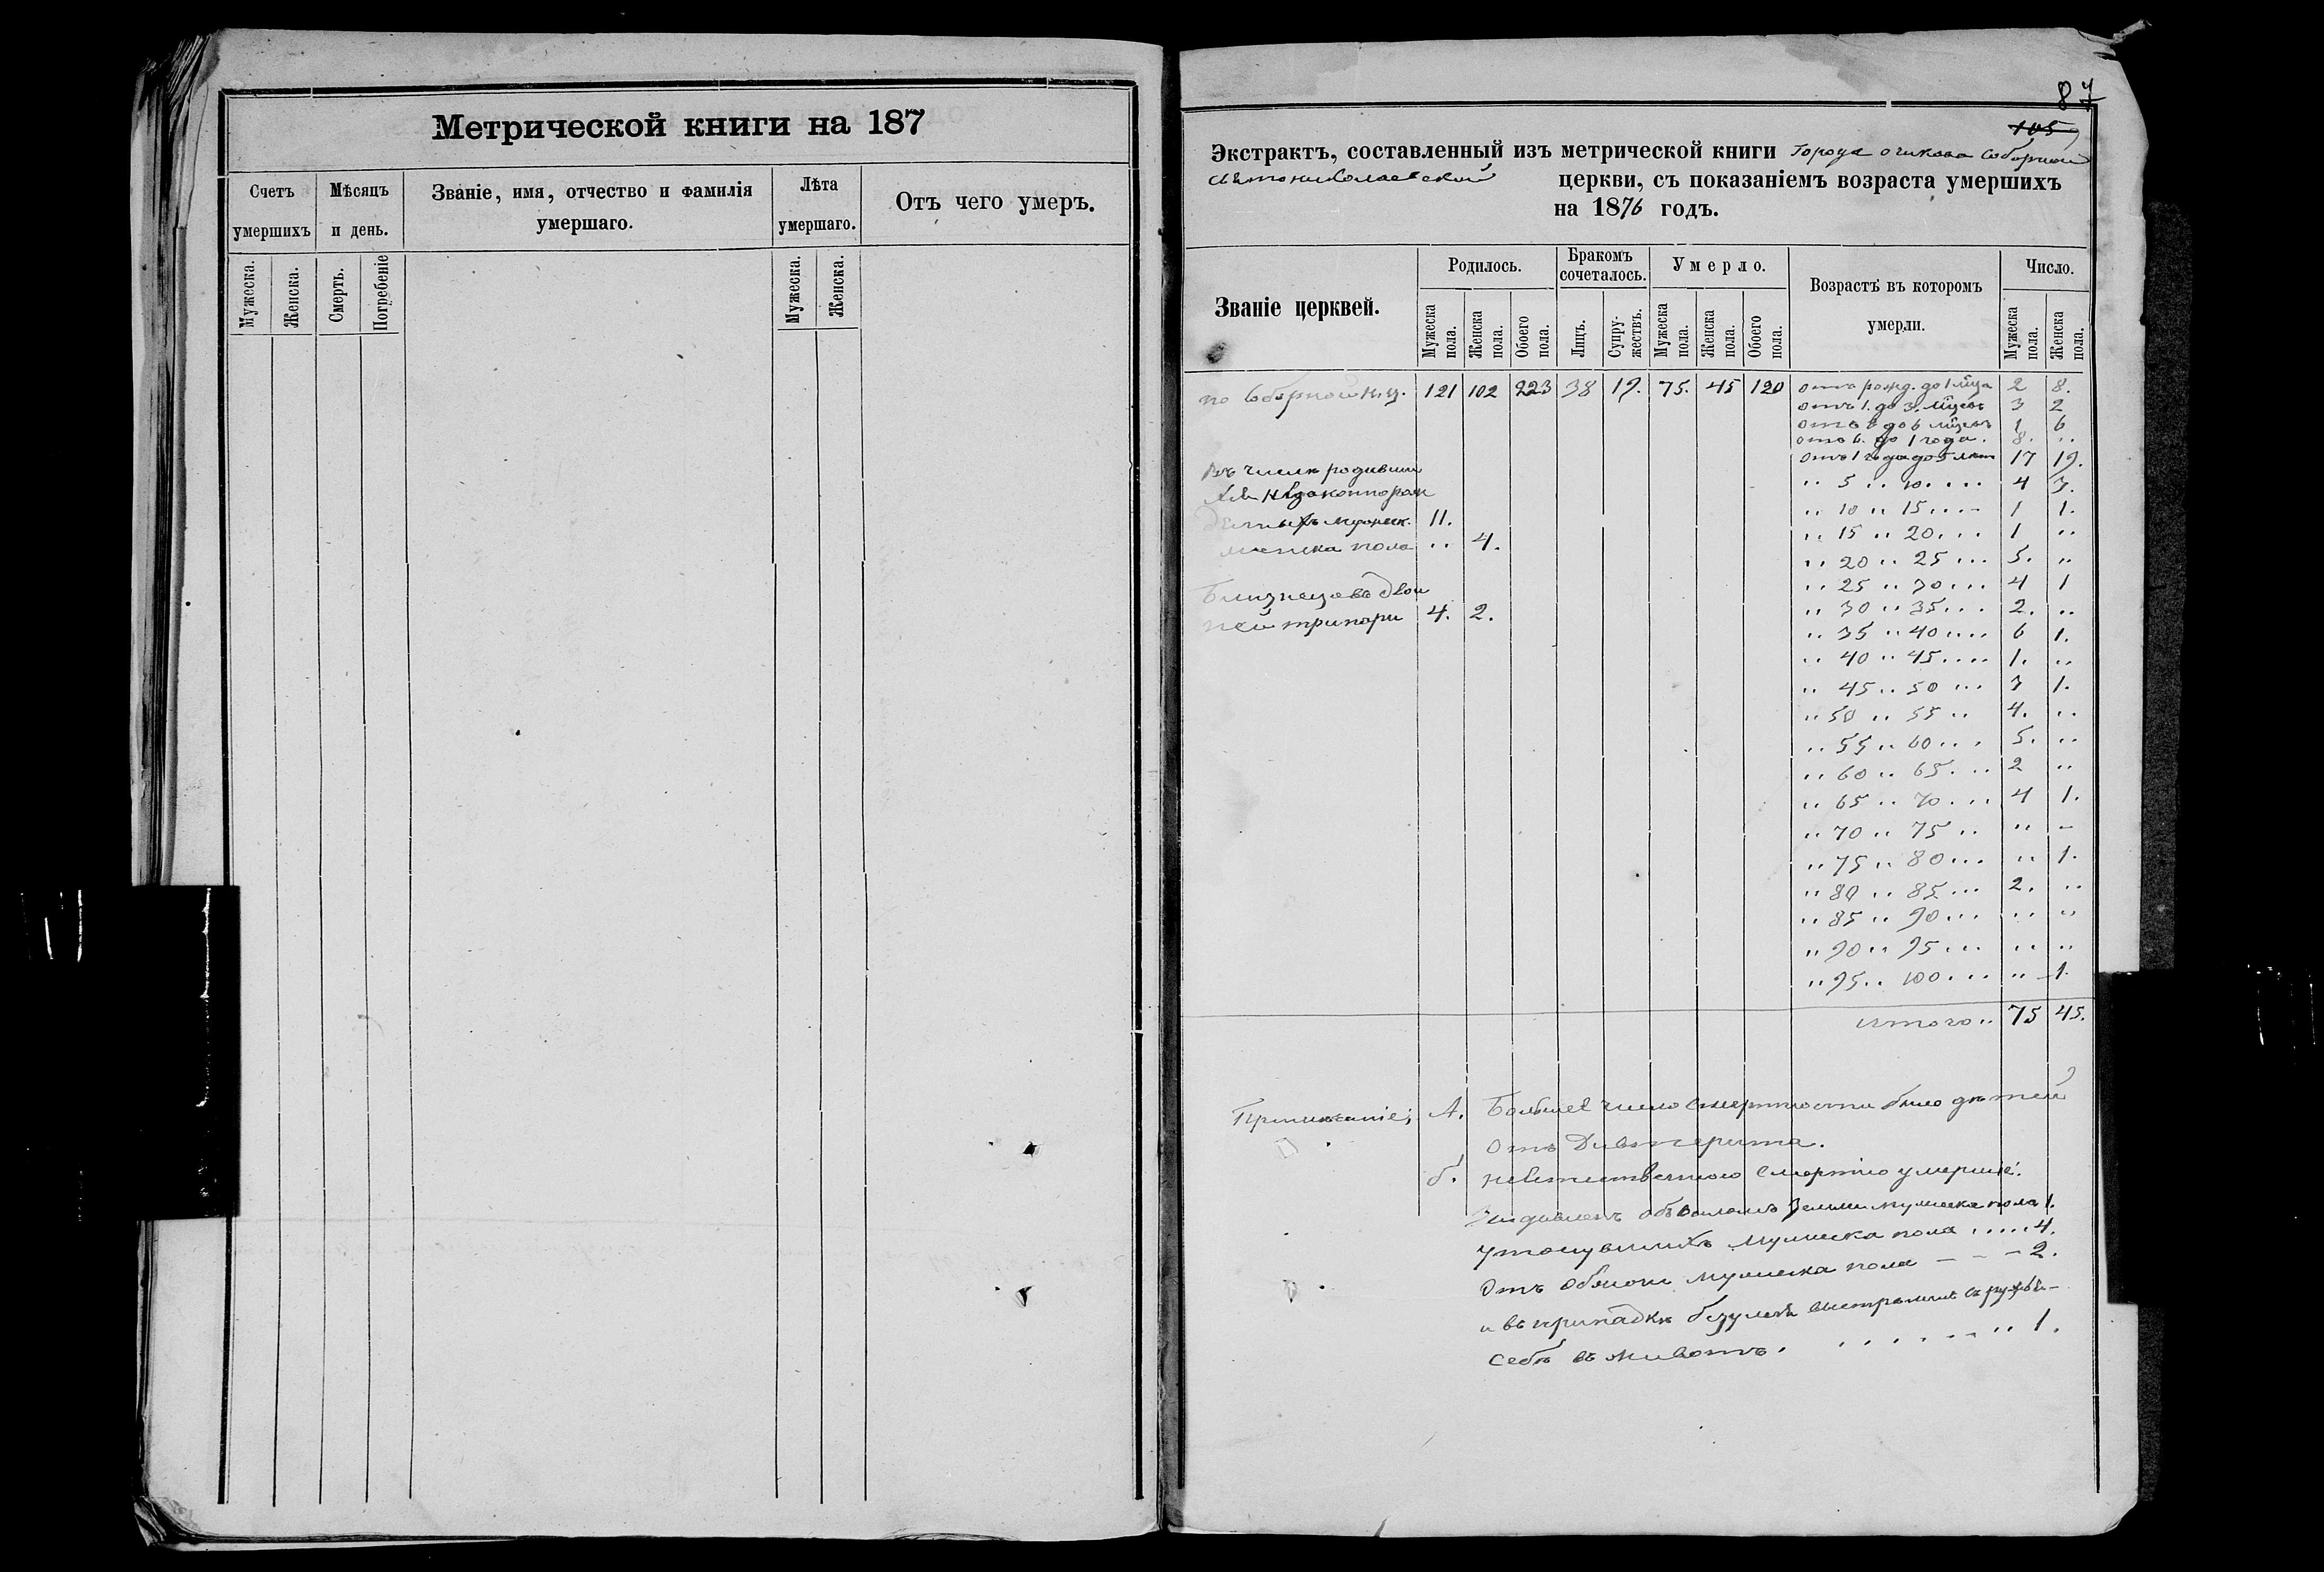 Метрической книги на 187
Счетъ умершихъ
Мѣсяцъ и день.
Званіе, имя, отчество и фамилія умершаго.
Лѣта умершаго.
Отъ чего умеръ.
Мужеска.
Женска.
Смерть.
Погребеніе
Мужеска.
Женска.
87
105
Экстрактъ, составленный изъ метрической книги Города Очакова Соборной
Свято николаевской церкви, съ показаніемъ возраста умершихъ
на 1876 годъ.
Званіе церквей.
Родилось.
Бракомъ сочеталось.
Умерло.
Возрастѣ въ которомъ умерли.
Число.
Мужеска пола.
Женска пола.
Обоего пола.
Лицъ.
Супружествъ.
Мужеска пола.
Женска пола.
Обоего пола.
Мужеска пола.
Женска пола.
по Соборной 121 102 223 38 19. 75. 45 120 отъ рожд. до 1 мца 2 8.
отъ 1. до 3. мцевъ 3 2
отъ 3 до 6 мцевъ 1 6
отъ 6. до 1 года. 8. "
отъ 1 года до 5 летъ 17 19.
Въ числѣ родивши
" 5 " 10 .... 4 3.
хся незаконнорож
" 10 " 15 .... 1 1.
денныхъ мужеск. 11.
" 15 " 20 ... 1 "
женска пола " 4.
" 20 " 25 ... 5. "
" 25 " 30 ... 4 1
Близнецовъ двой
" 30 " 35 ... 2. "
ней три пары 4. 2.
" 35 " 40 .... 6 1.
" 40 " 45 .... 1. "
" 45 " 50 ... 3 1.
" 50 " 55 " 4. "
" 55 " 60 ... 5. "
" 60 " 65 ... 2 "
" 65 " 70 ... 4 1.
" 70 " 75 " " -
" 75 " 80 ... " 1.
" 80 " 85 ... 2. "
" 85 " 90 ... " "
" 90 " 95 ... " "
" 95 " 100 .... " 1.
итого " 75 45.
Примѣчаніе; А. Большее число смертности было дѣтей
отъ Дивтерита.
б. неестественною смертію умершіе:
обваломъ земли мужеска пола 1.
утонувшихъ мужеска пола ..... 4.
Отъ мужеска пола - - - 2.
и въ припадкѣ безумія выстрелилъ съ ружья
себѣ въ животъ. ........ 1.